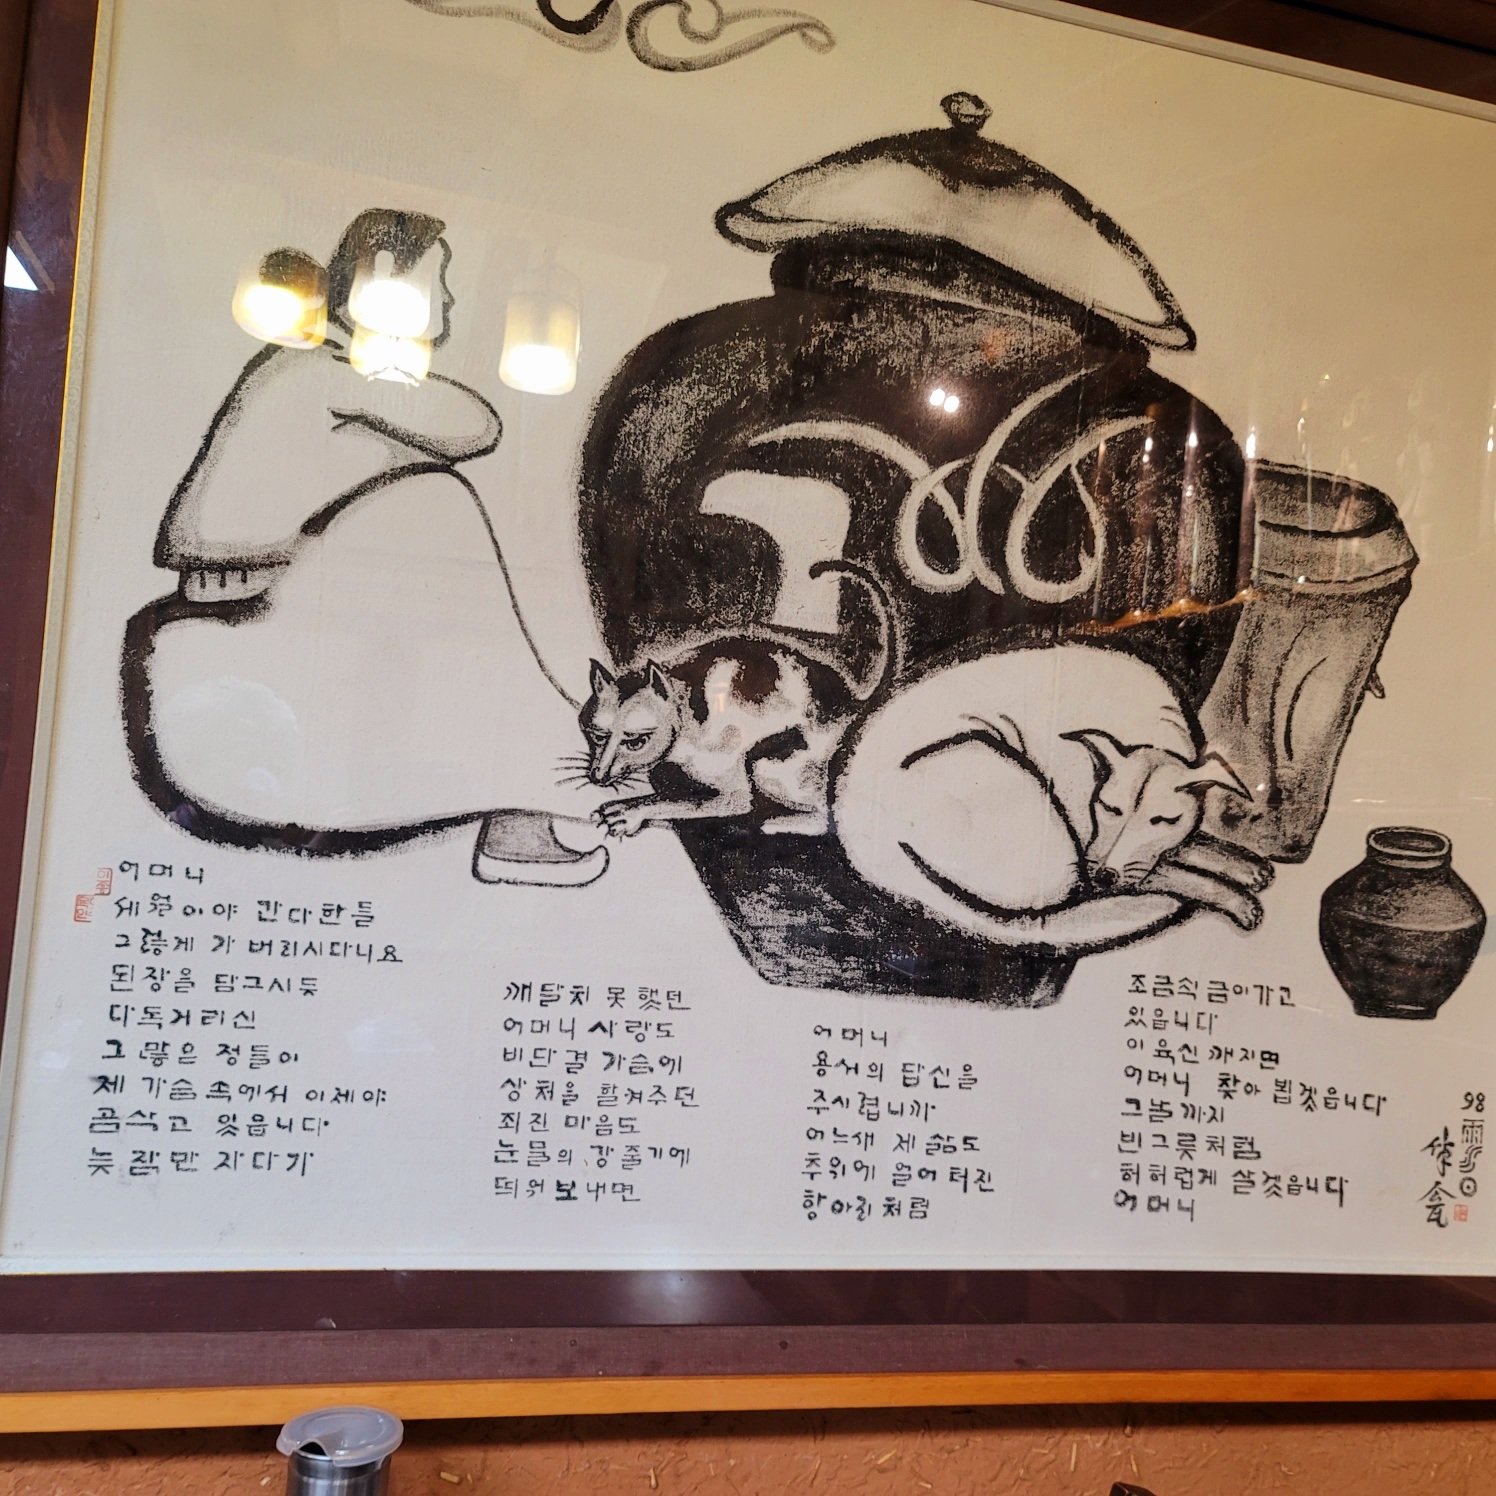 어머니
세월이야 간다한들
그렇게 가 버리시다니요
된장을 담그시듯
다독거리신
그 많은 정들이
제 가슴 속에서 이제야
곰삭고 있읍니다
늦잠만 자다가
깨닫지 못 했던
어머니 사랑도
비단결 가슴에
상처을 할켜주던
죄진 마음도
눈물의 강 줄기에
띄워 보내면
어머니
용서의 답신을
주시렵니까
어느새 제 삶도
추위에 얼어 터진
항아리처럼
조금씩 금이가고
있읍니다
이 육신 깨지면
어머니 찾아 뵙겠읍니다
그날까지
빈그릇처럼
허허럽게 살겠읍니다
어머니
98